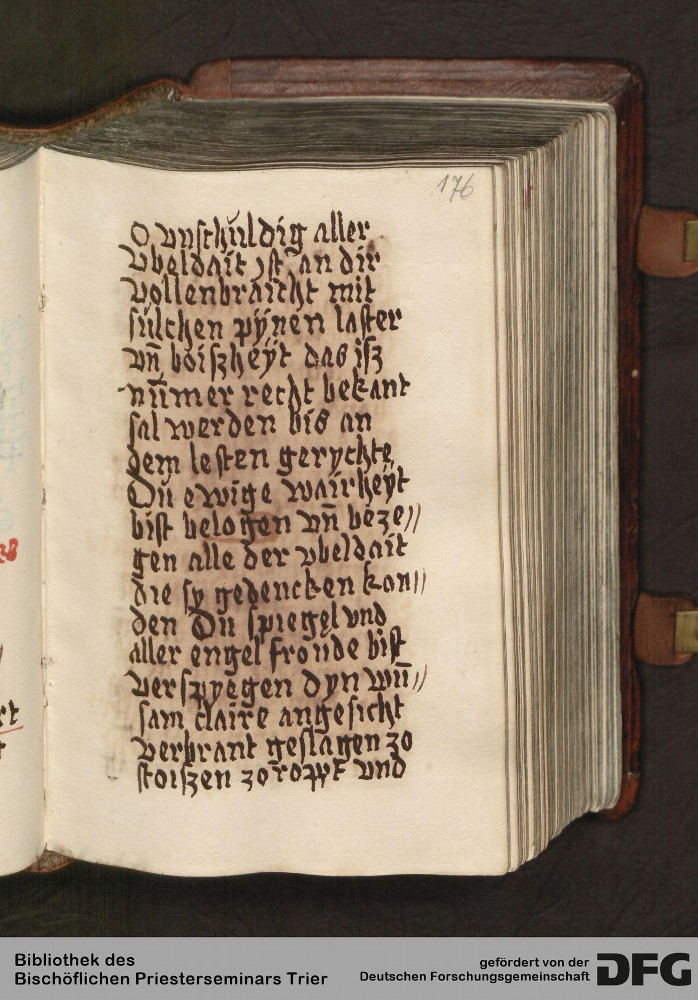 176
O vnschuldig aller
vbeldait ist an dir
vollenbraicht mit
sulchen pÿnen laster
vn̄ boiszheÿt das isz
nūmer recht bekant
sal werden bis an
dem lesten gerychte
Du ewige wairheÿt
bist belogen vn̄ beze//
gen alle der vbeldait
die sy gedencken kon//
den Du spiegel vnd
aller engel froude bist
verspyegen dyn wū//
sam claire angesicht
verbrant geslagen zo
stoiszen zoropp͛t vnd
rt
Bibliothek des
Bischöflichen Priesterseminars Trier
gefördert von der
Deutschen Forschungsgemeinschaft
DFG